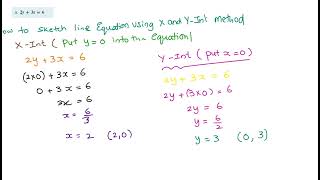 ow to sketch line Equation using X and Y-Int method
X-Int ( Put y = 0 into the Equation)
2y + 3x = 6
(2x0) + 3x = 6
0 + 3x = 6
3x = 6
x = 6/3
x = 2 (2,0)
Y-Int ( Put x = 0 )
2y + 3x = 6
2y + (3x0) = 6
2y = 6
y = 6/2
y = 3 (0, 3)